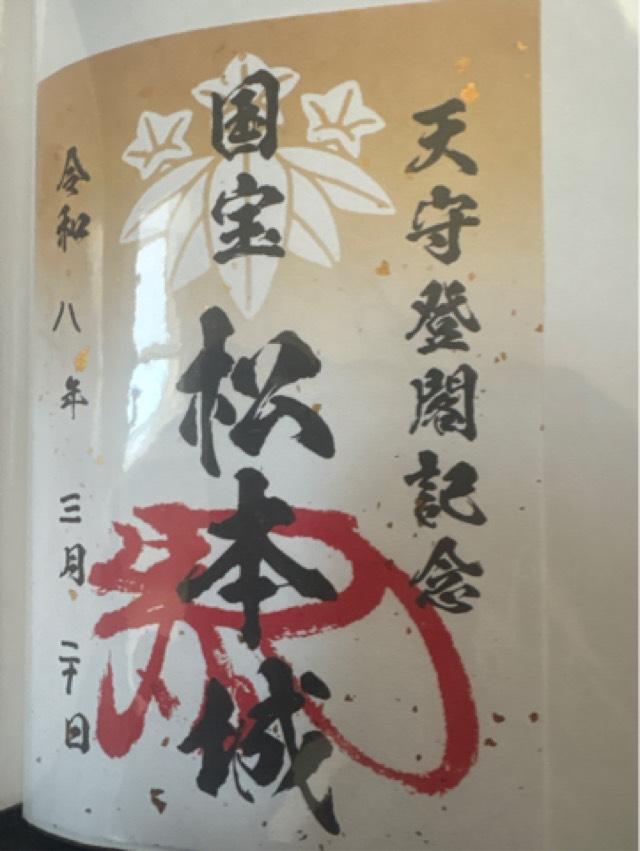 天守登閣記念
国宝 松本城
令和八年三月二十日